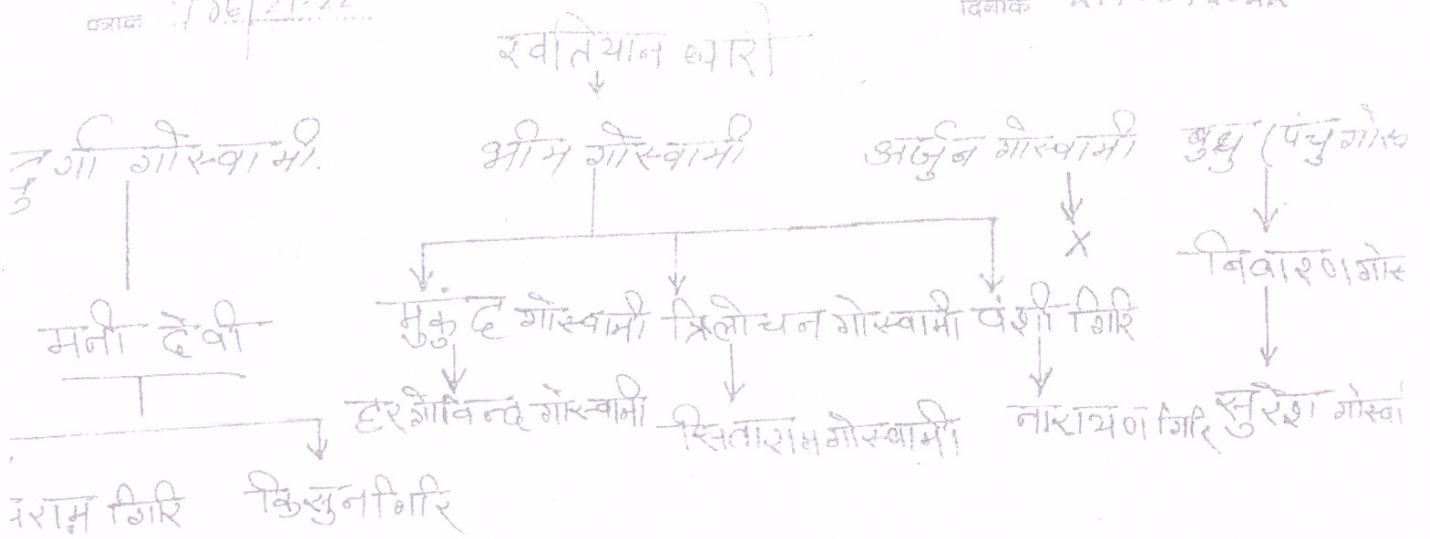 पत्रांक
दिनांक
खतियान धारी
दुर्गा गोस्वामी भीम गोस्वामी अर्जुन गोस्वामी बुधु (पंचु
निवारण
मनी देवी मुकुंद गोस्वामी त्रिलोचन गोस्वामी वंशी गिरि
हरगोविन्द गोस्वामी सिताराम गोस्वामी नारायण गिरि सुरेश
गिरि किसुन गिरि